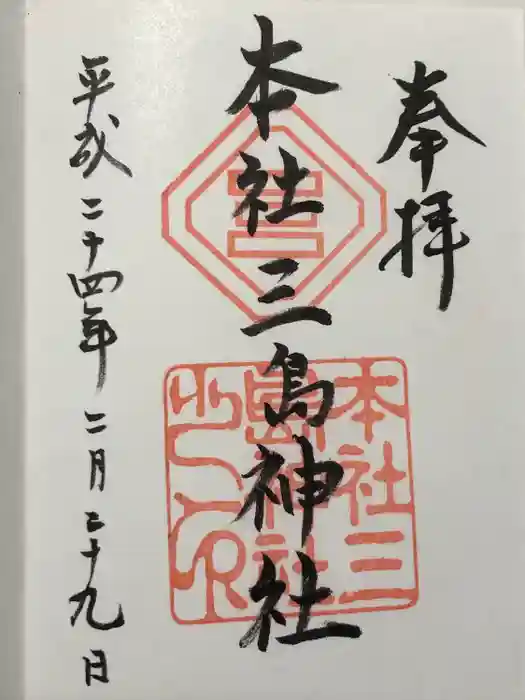 奉拝
本社三島神社
本社三
島神社
之印
平成二十四年二月二十九日